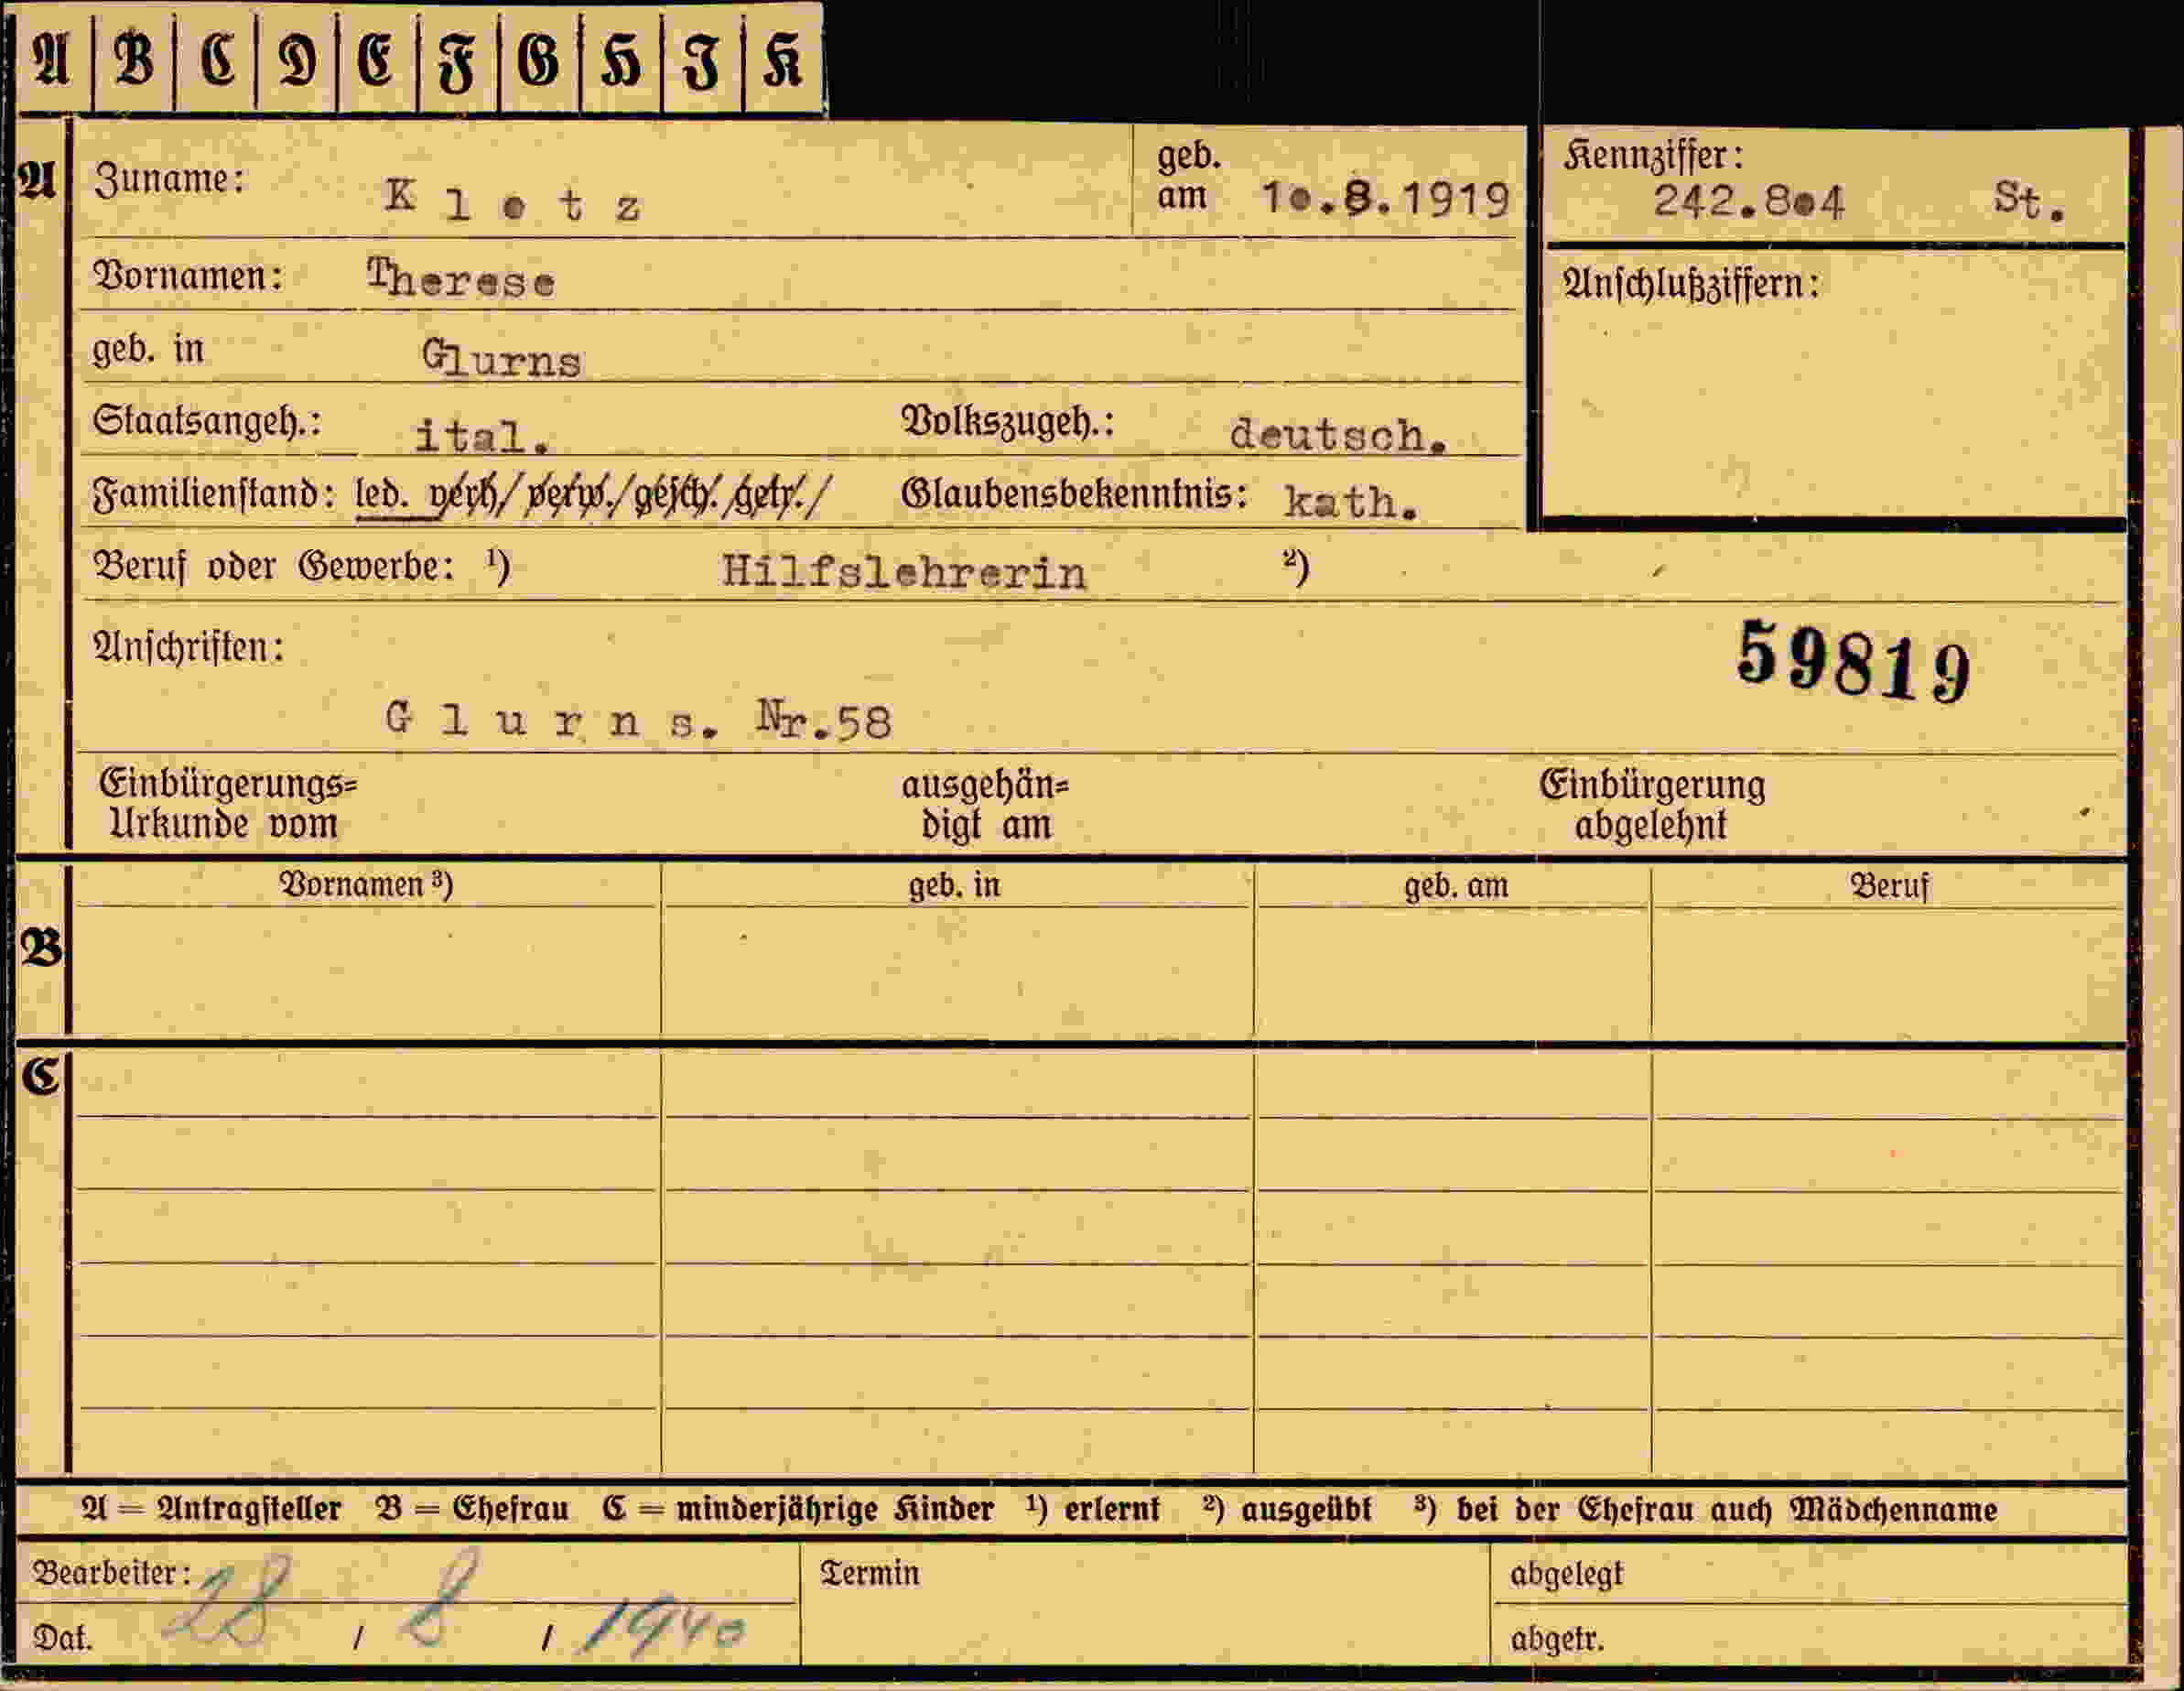 A B C D E F G H J K
A Zuname: Klotz geb. am 10.8.1919 Kennziffer: 242.804 St.
Vornamen: Therese Anschlußziffern:
geb. in Glurns
Staatsangeh.: ital. Volkszugeh.: deutsch.
Familienstand: led. verh/ verw./gesch./getr./ Glaubensbekenntnis: kath.
Beruf oder Gewerbe: ¹) Hilfslehrerin ²)
Anschriften: 59819
Glurns. Nr.58
Einbürgerungs= ausgehän= Einbürgerung
Urkunde vom digt am abgelehnt
Vornamen ³) geb. in geb. am Beruf
B
C
A = Antragsteller B = Ehefrau C = minderjährige Kinder ¹) erlernt ²) ausgeübt ³) bei der Ehefrau auch Mädchenname
Bearbeiter: Termin abgelegt
Dat. 28 / 8 / 1940 abgetr.